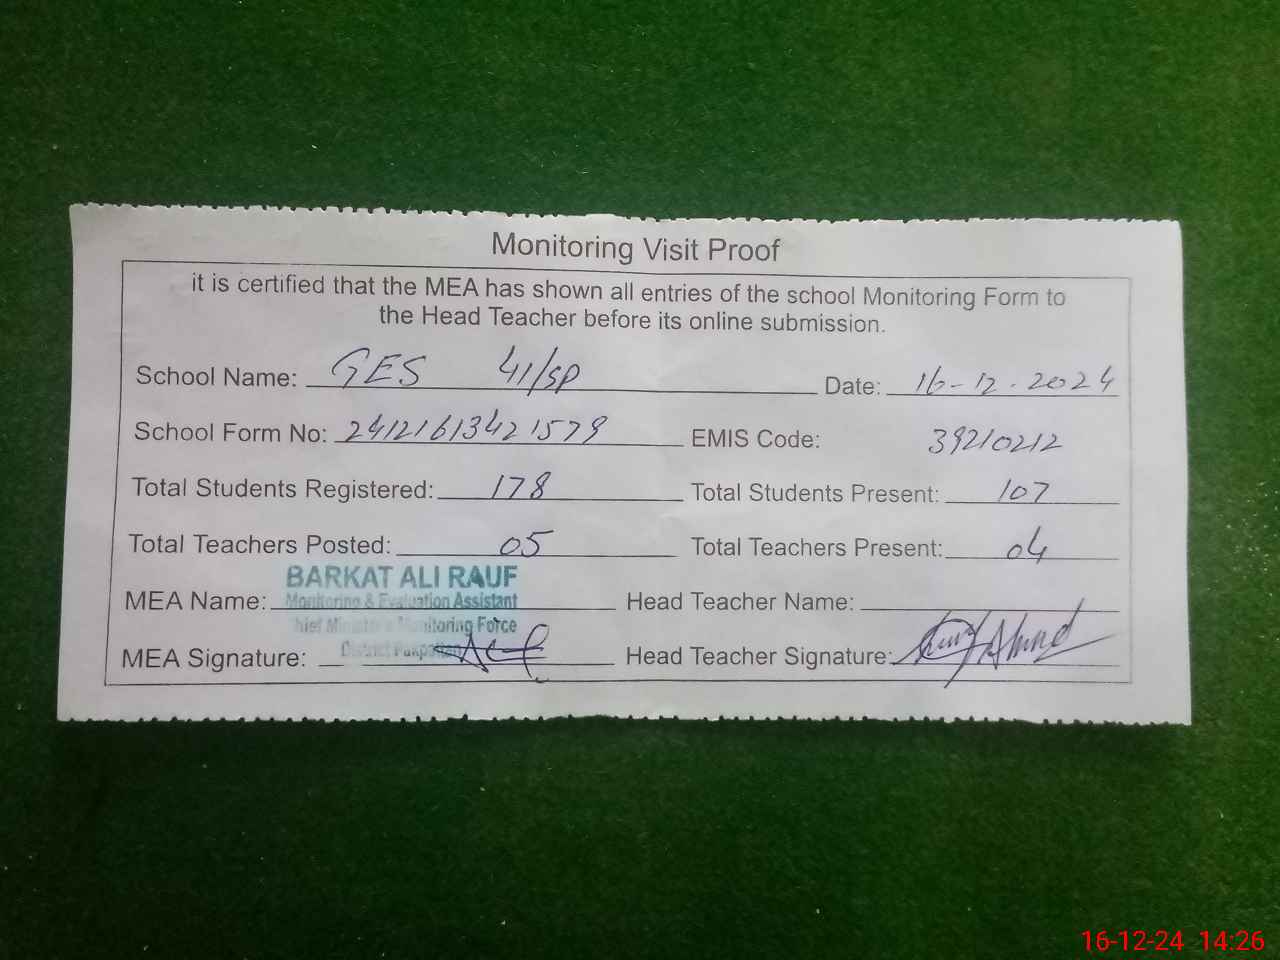 Monitoring Visit Proof
it is certified that the MEA has shown all entries of the school Monitoring Form to
the Head Teacher before its online submission.
School Name: GES 41/SP Date: 16-12-2024
School Form No: 24121613421579 EMIS Code: 39210212
Total Students Registered: 178 Total Students Present: 107
Total Teachers Posted: 05 Total Teachers Present: 04
BARKAT ALI RAUF
MEA Name: Monitoring & Evaluation Assistant Head Teacher Name:
Chief Minister's Monitoring Force
District Pakpattan
MEA Signature: Head Teacher Signature: Ahmad
16-12-24 14:26